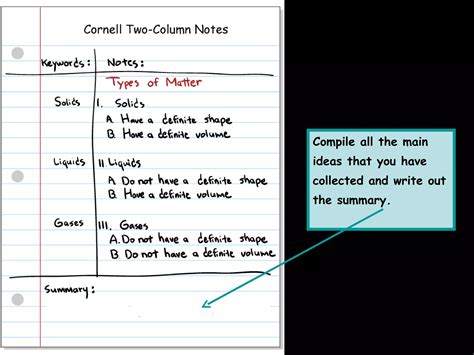 Cornell Two-Column Notes
Keywords: Notes:
Types of Matter
Solids I. Solids
A. Have a definite shape
B. Have a definite volume
Liquids II. Liquids
A. Do not have a definite shape
B. Have a definite volume
Gases III. Gases
A. Do not have a definite shape
B. Do not have a definite volume
Summary:
Compile all the main
ideas that you have
collected and write out
the summary.